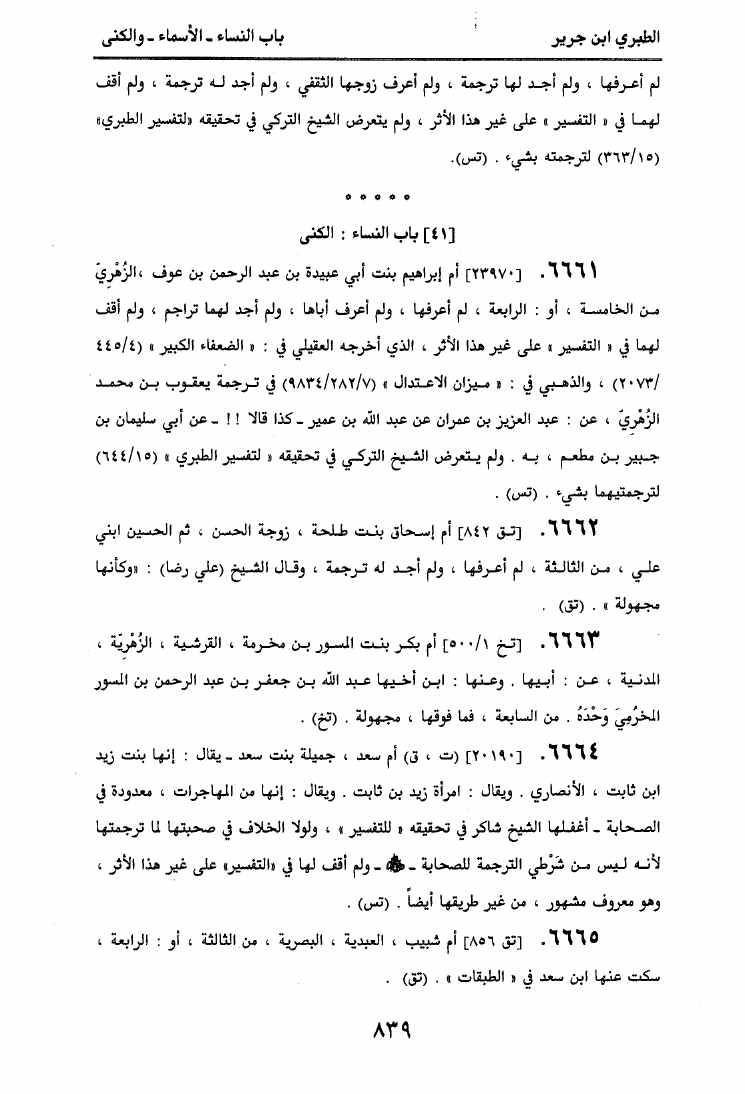 الطبري ابن جرير
باب النساء ـ الأسماء ـ والكنى
لم أعرفها ، ولم أجد لها ترجمة ، ولم أعرف زوجها الثقفي ، ولم أجد له ترجمة ، ولم أقف
لهما في « التفسير » على غير هذا الأثر ، ولم يتعرض الشيخ التركي في تحقيقه «لتفسير الطبري»
(٣٦٣/١٥) لترجمته بشيء . (تس).
* * * * *
[٤١] باب النساء : الكنى
٦٦٦١. [٢٣٩٧٠] أم إبراهيم بنت أبي عبيدة بن عبد الرحمن بن عوف ،الزُهْرِيّ
من الخامسة ، أو : الرابعة ، لم أعرفها ، ولم أعرف أباها ، ولم أجد لهما تراجم ، ولم أقف
لهما في « التفسير » على غير هذا الأثر ، الذي أخرجه العقيلي في : « الضعفاء الكبير » (٤٤٥/٤
/٢٠٧٣) ، والذهبي في : « ميزان الاعتدال » (٩٨٣٤/٢٨٢/٧) في ترجمة يعقوب بن محمد
الزُهْرِيّ ، عن : عبد العزيز بن عمران عن عبد الله بن عمير ـ كذا قالا !! ـ عن أبي سليمان بن
جبير بن مطعم ، به . ولم يتعرض الشيخ التركي في تحقيقه « لتفسير الطبري » (٦٤٤/١٥)
لترجمتيهما بشيء . (تس) .
٦٦٦٢. [تق ٨٤٢] أم إسحاق بنت طلحة ، زوجة الحسن ، ثم الحسين ابني
علي ، من الثالثة ، لم أعرفها ، ولم أجد له ترجمة ، وقال الشيخ (علي رضا) : «وكأنها
مجهولة » . (تق) .
٦٦٦٣. [تخ ٥٠٠/١] أم بكر بنت المسور بن مخرمة ، القرشية ، الزُهْرِيّة ،
المدنية ، عن : أبيها . وعنها : ابن أخيها عبد الله بن جعفر بن عبد الرحمن بن المسور
المخرُمِيّ وَحْدَهُ . من السابعة ، فما فوقها ، مجهولة . (تخ) .
٦٦٦٤. [٢٠١٩٠] (ت ، ق) أم سعد ، جميلة بنت سعد ـ يقال : إنها بنت زيد
ابن ثابت ، الأنصاري . ويقال : امرأة زيد بن ثابت . ويقال : إنها من المهاجرات ، معدودة في
الصحابة ـ أغفلها الشيخ شاكر في تحقيقه « للتفسير » ، ولولا الخلاف في صحبتها لما ترجمتها
لأنه ليس من شَرْطي الترجمة للصحابة ـ ـ ولم أقف لها في «التفسير» على غير هذا الأثر ،
وهو معروف مشهور ، من غير طريقها أيضاً . (تس) .
٦٦٦٥. [تق ٨٥٦] أم شبيب ، العبدية ، البصرية ، من الثالثة ، أو : الرابعة ،
سكت عنها ابن سعد في « الطبقات » . (تق) .
٨٣٩